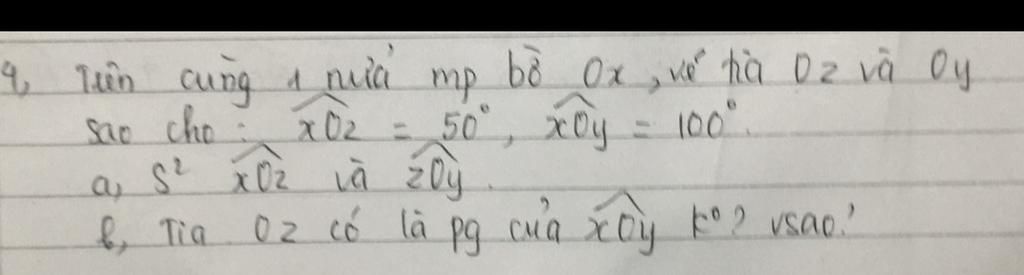 9, Trên cùng 1 nửa mp bờ Ox, vẽ tia Oz và Oy
sao cho : xOz = 50°, xOy = 100°.
a, S² xOz và zOy.
b, Tia Oz có là pg của xOy k⁰? vsao?